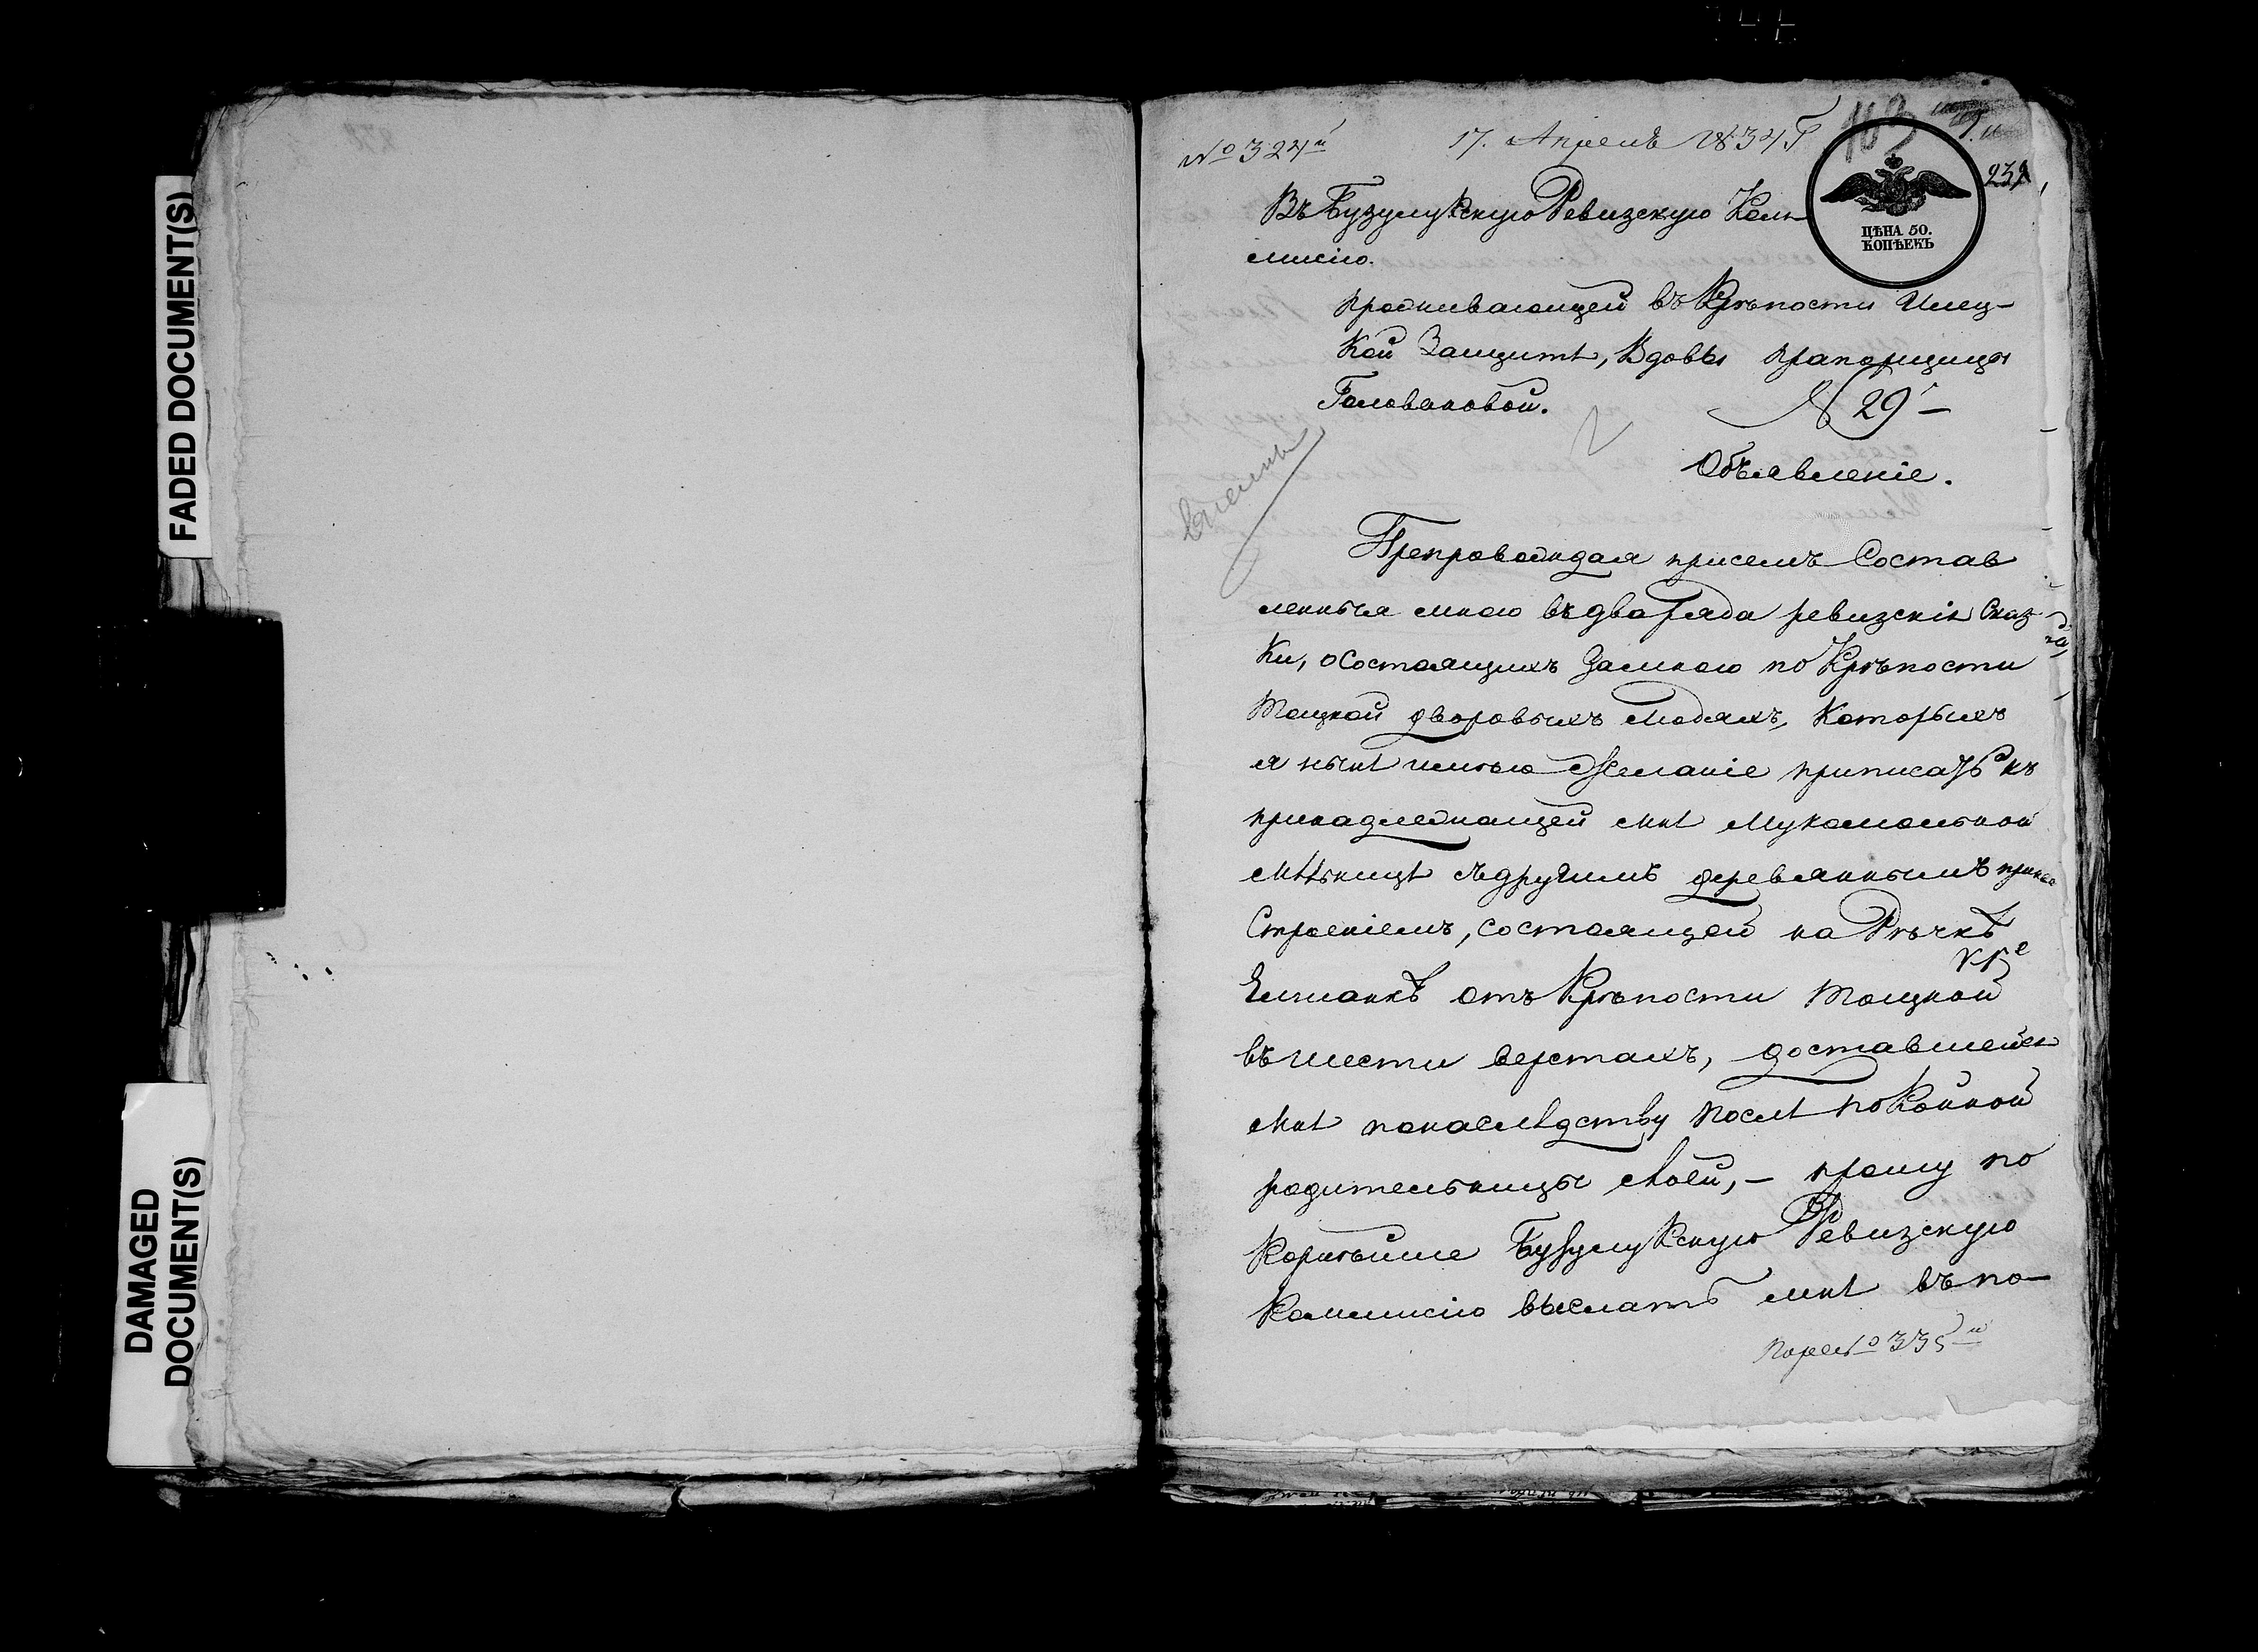 FADED DOCUMENT(S)
DAMAGED
DOCUMENT(S)
№ 324й 17. Апрель 1834 Г
239
ЦѢНА 50.
КОПѢЕКЪ
Въ Бузулукскую Ревизскую Ком-
мисію.
проживающей въ Крѣпости Илец-
кой Защитѣ, Вдовы прапорщицы
Головановой.
№ 29
Объявленіе.
Препровождая присемъ Состав
ленныя мною въ два ряда ревизскія Сказ-
ки, о Состоящихъ Замною по Крѣпости
Тоцкой дворовыхъ людяхъ, Которыхъ
я нынѣ имѣю Желаніе приписать къ
принадлежащей мнѣ Мукомольной
мѣльницѣ съ другимъ деревяннымъ
Строеніемъ, состоящей на Рѣчкѣ
Елшанкѣ отъ Крѣпости Тоцкой
въ шести верстахъ, доставшейся
мнѣ понаслѣдству послѣ покойной
родительницы моей, – прошу по
Корнѣйше Бузулукскую Ревизскую
Коммисію выслать мнѣ въ по-
№ 335й